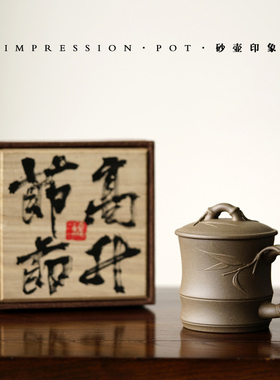 IMPRESSION · POT · 砂壶印象
節節
高升